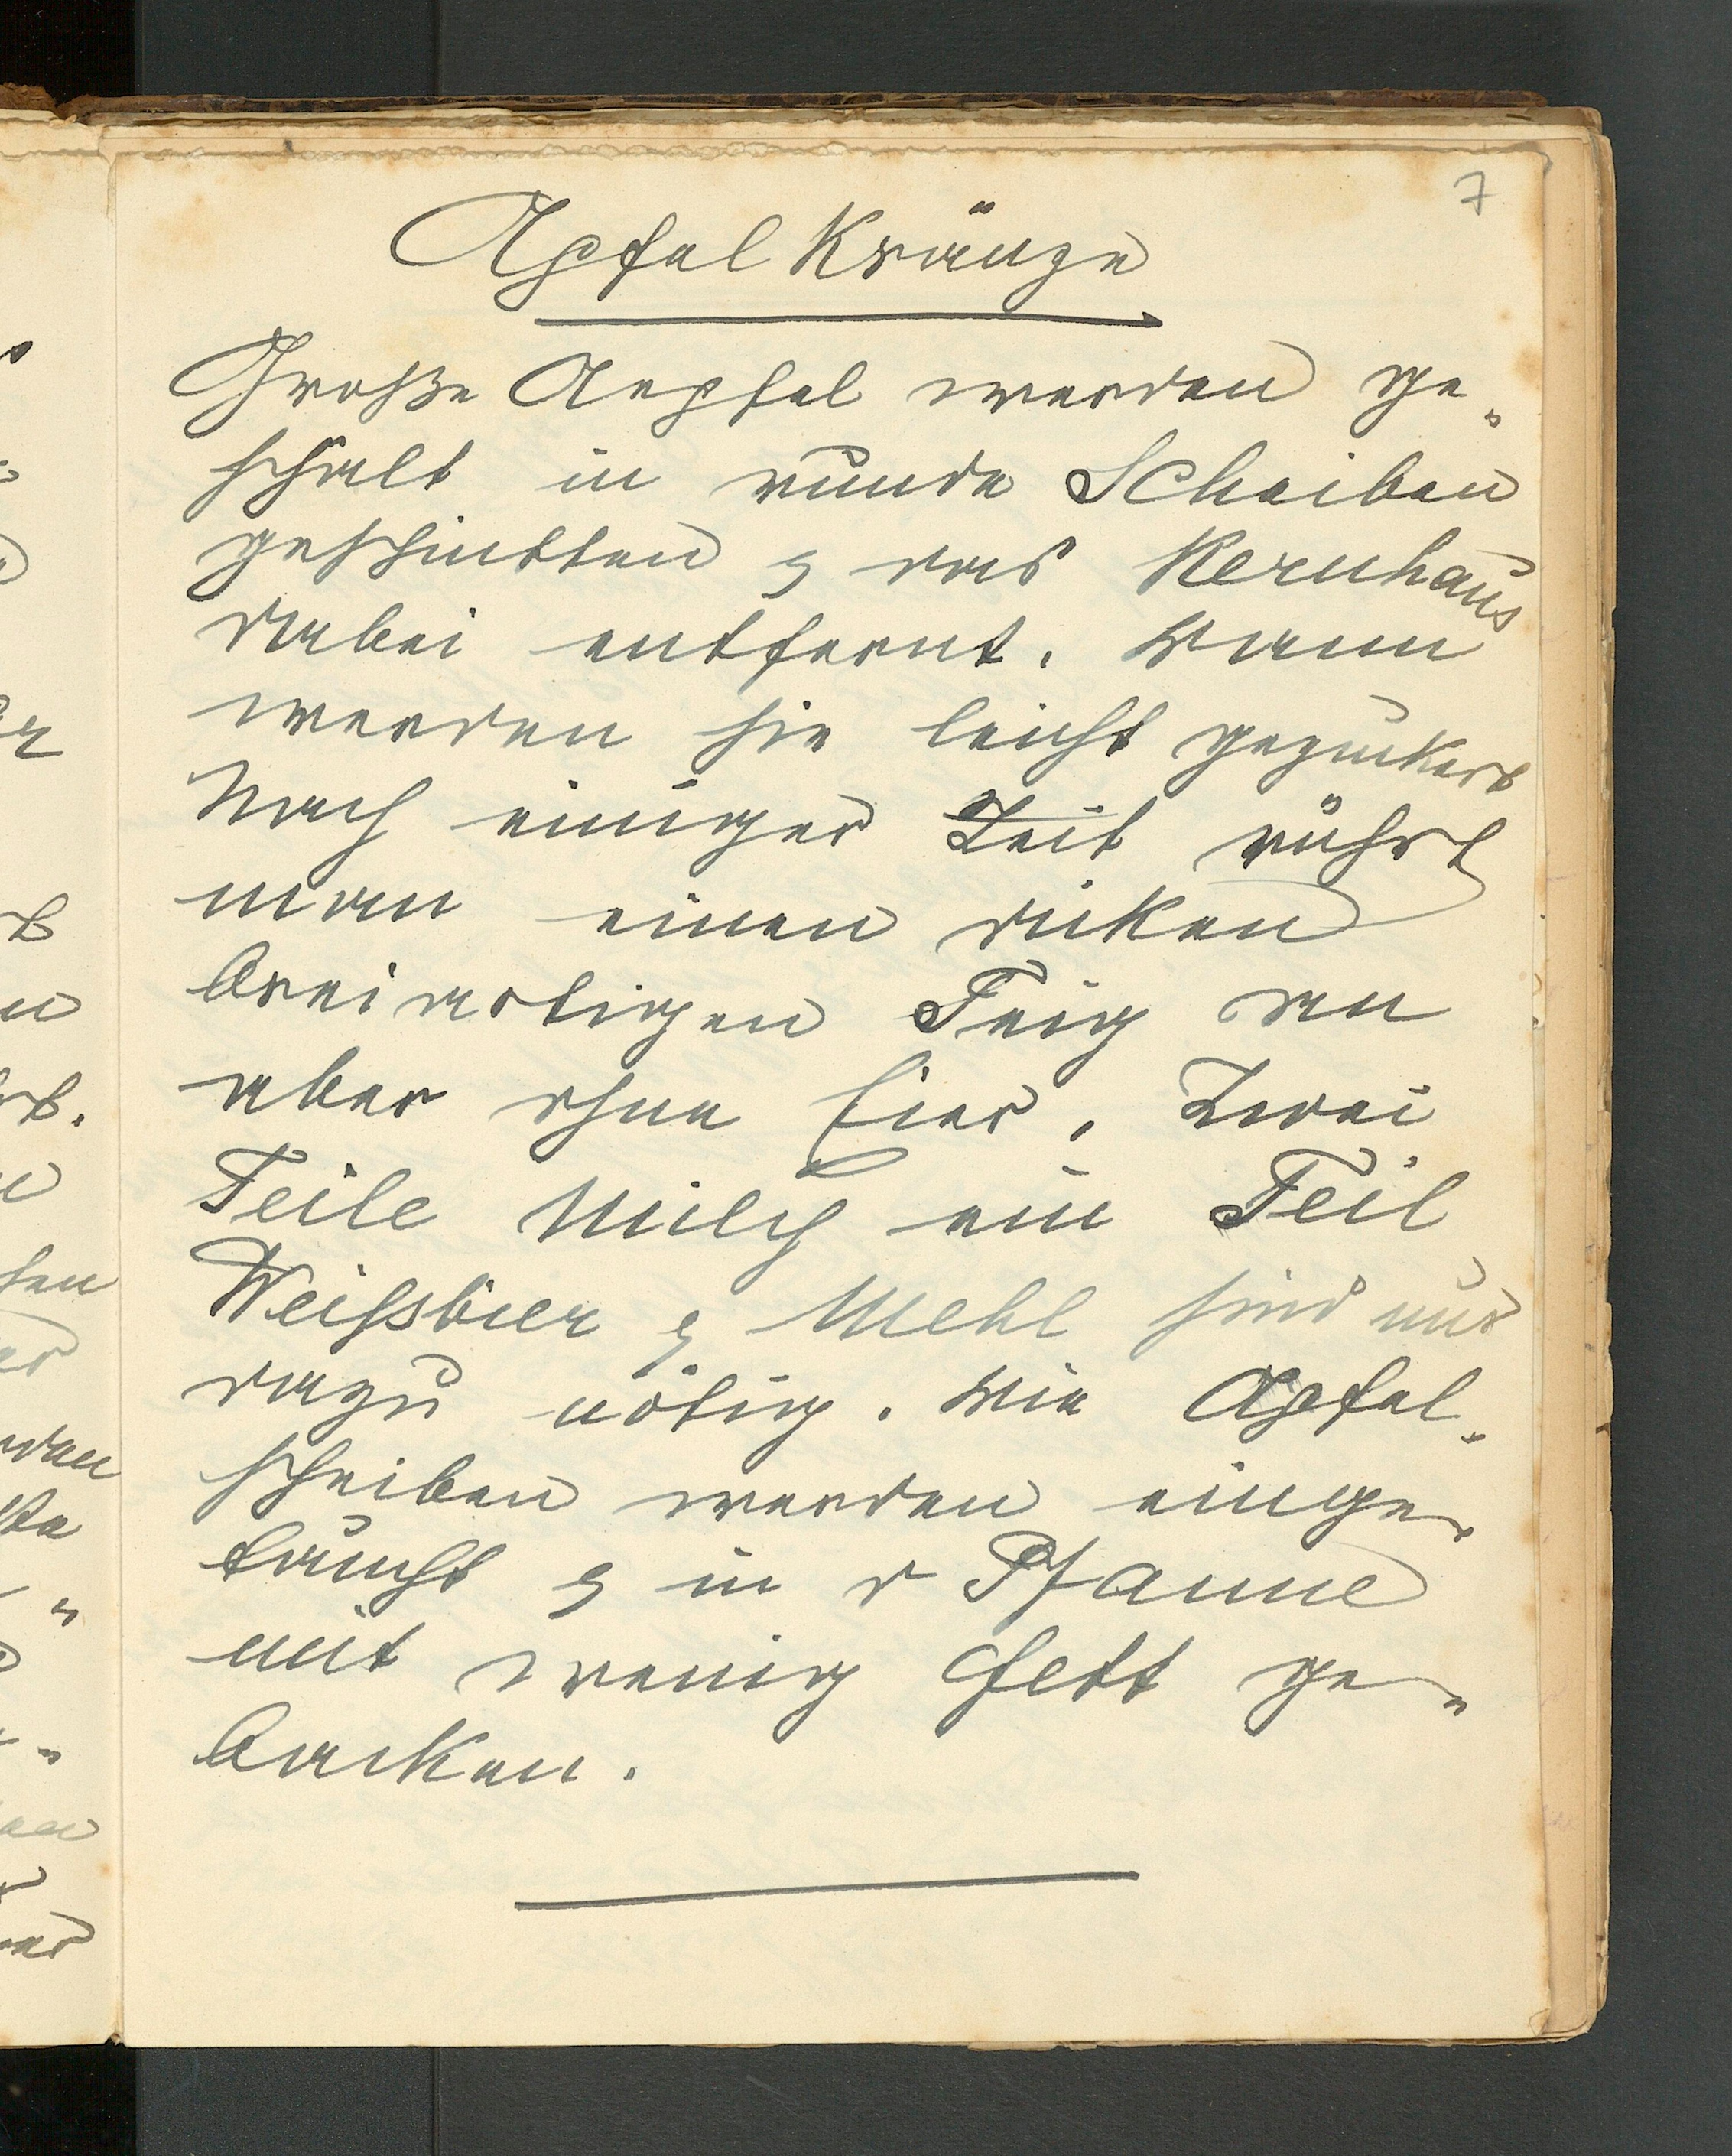 7
Apfel Kränze
Große Aepfel werden ge„
schält in runde Scheiben
geschnitten & das Kernhaus
dabei entfernt. Dann
werden sie leicht gezuckert
Nach einiger Zeit rührt
man einen dicken
breiartigen Teig an
aber ohne Eier. Zwei
Teile Milch ein Teil
Weißbier & Mehl sind nur
dazu nötig. Die Apfel„
scheiben werden einge„
taucht & in d Pfanne
mit wenig Fett ge„
backen.